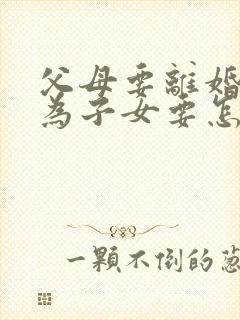 父母要離婚
為子女要怎
一顆不倒的蔥